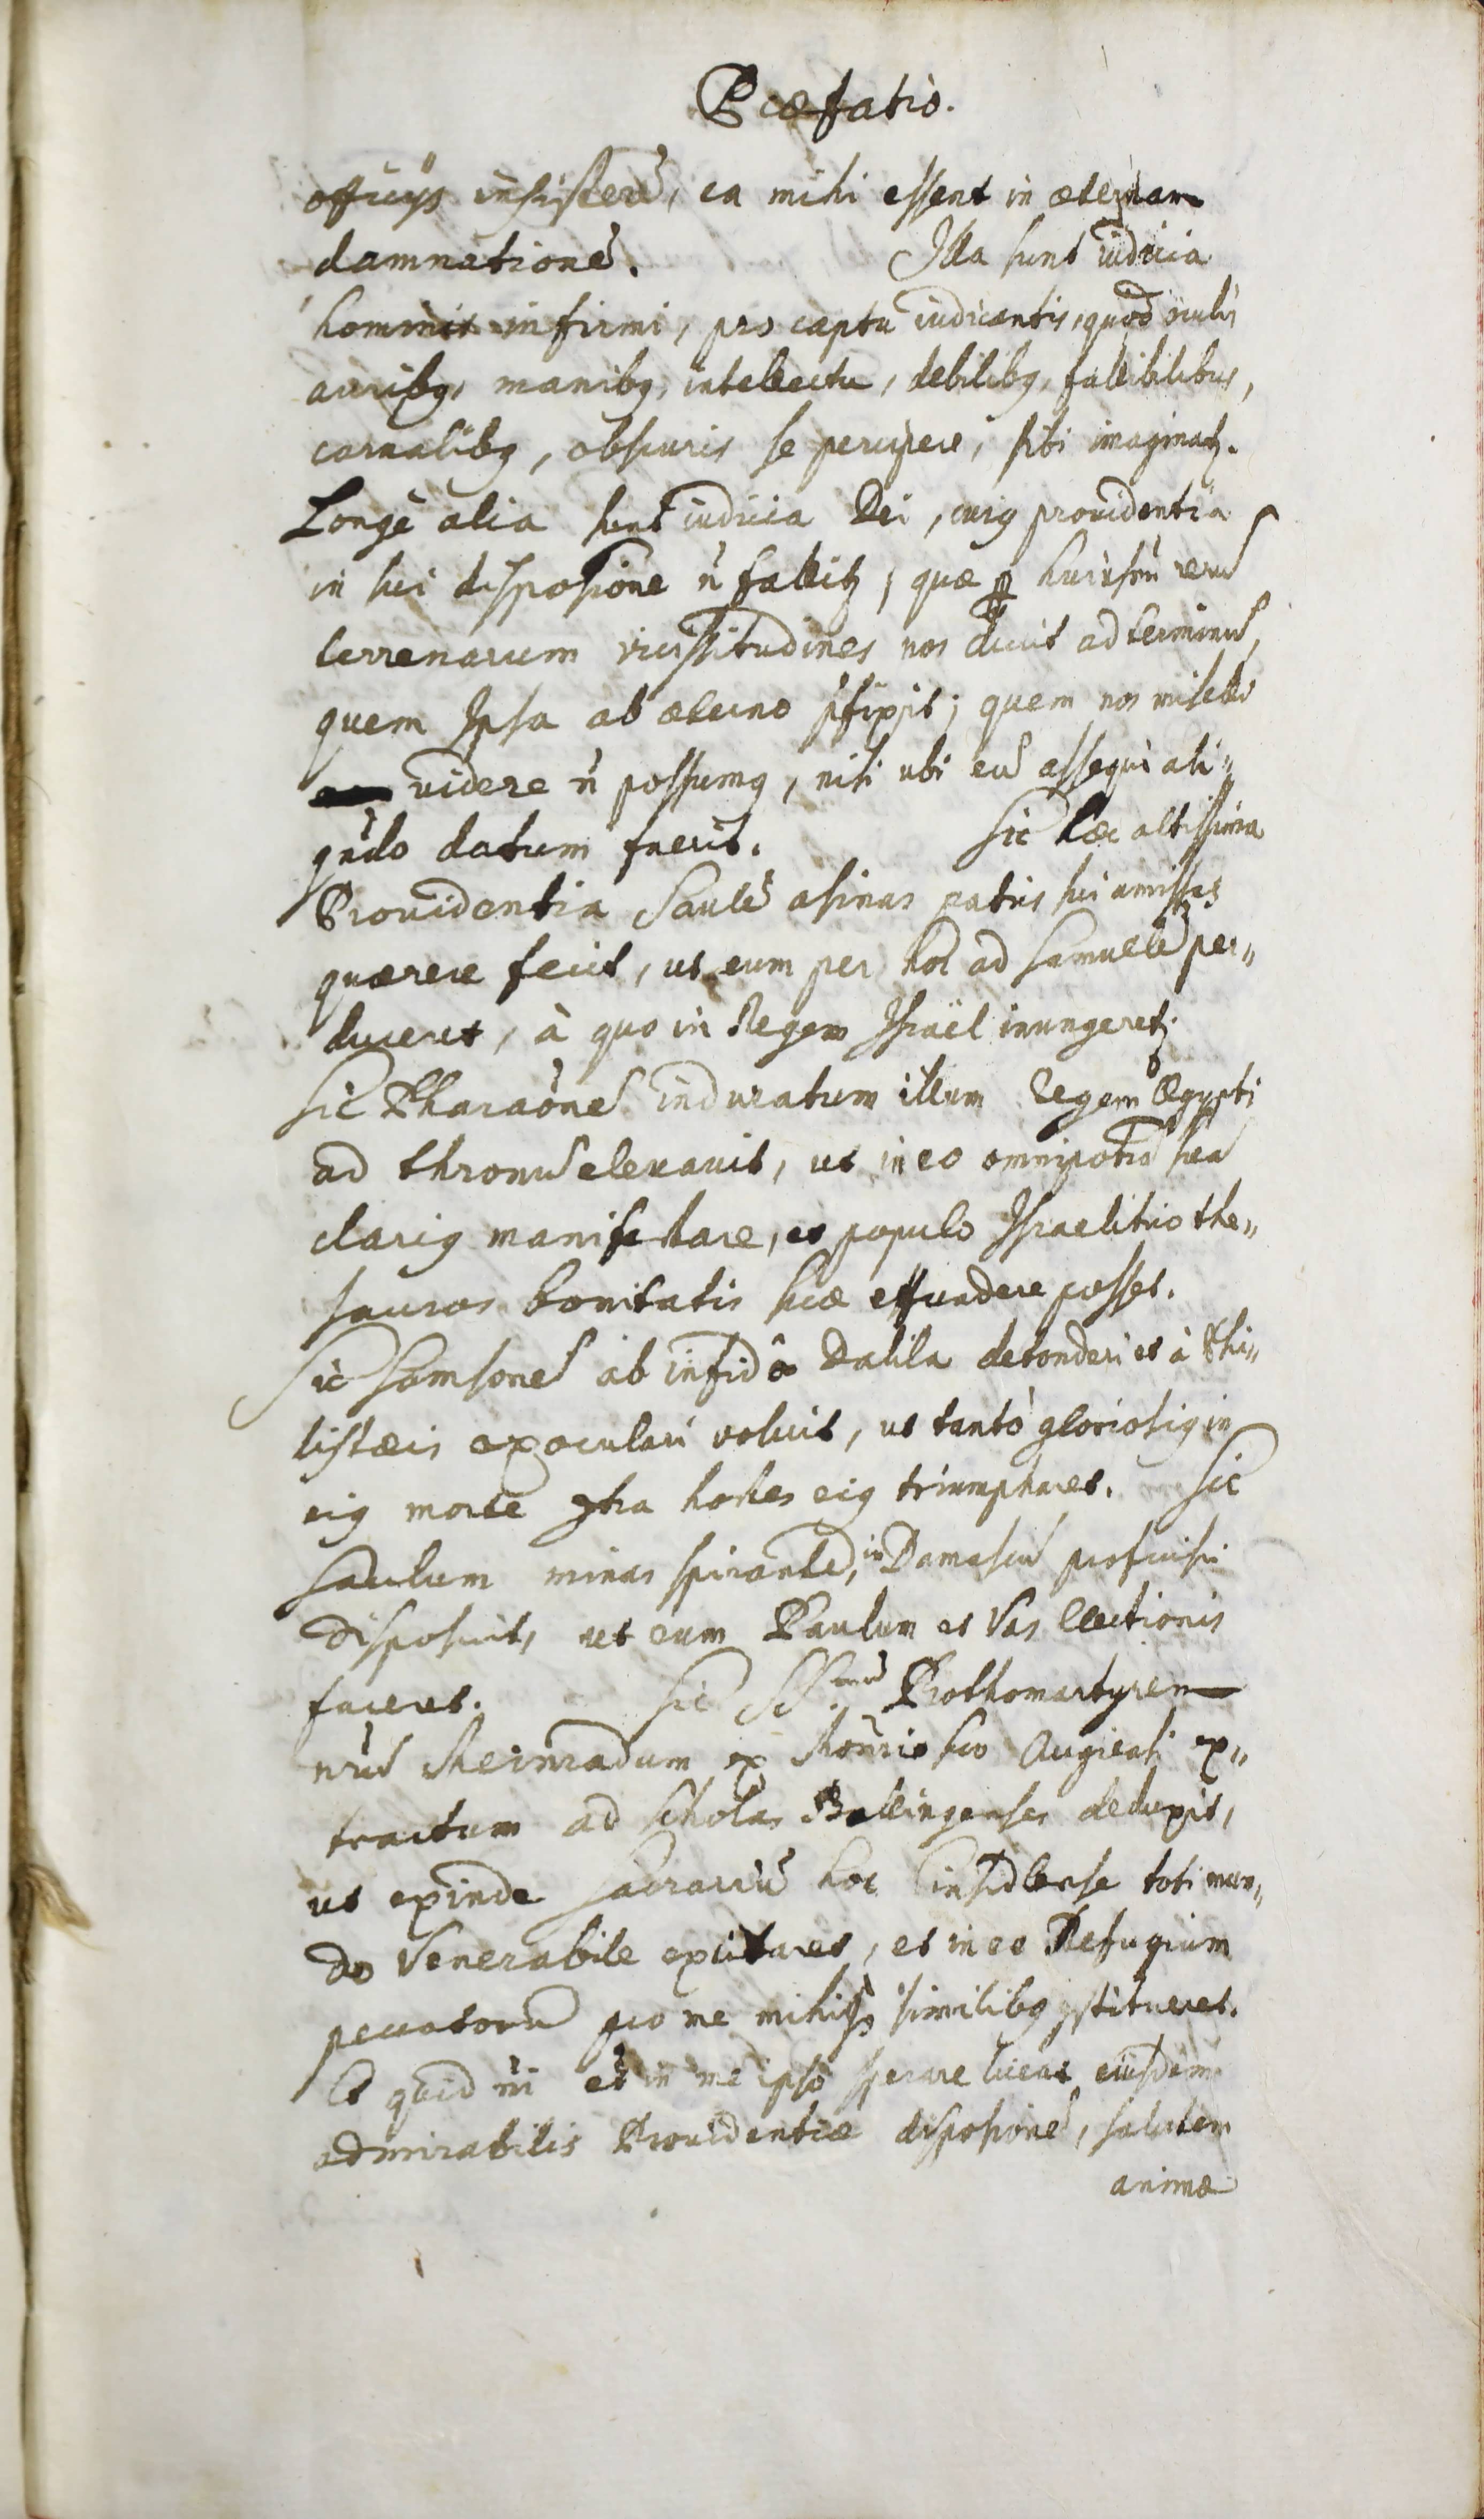 Præfatio.
officijs insisterẽ, ea mihi essent in æternam
damnationẽ. Illa sunt iudicia
hominis infirmi, pro captu iudicantis, quod oculis
auribq, manibq, intellectu, debilibq, fallibilibus,
carnalibq, obscuris se percipere, sibi imaginatr.
Longè alia sunt iudicia Dei, cuiq providentia
in sui disposiõne ñ fallitr, quæ ꝑ huiusm̃ rerũ
terrenarum vicissitudines nos ducit ad terminũ,
quem Ipsa ab æterno p̃fixit; quem nos miselli
videre ñ possumq, nisi ubi eũ assequi ali„
qñdo datum fuerit. Sic hæc altissima
Providentia Saulẽ asinas patris sui amissas
quærere fecit, ut eum per hoc ad Samuelẽ per„
duceret, à quo in Regem Israël inungeretr.
Sic Pharaõnẽ induratum illum Regem Ægypti
ad thronũ elevavit, ut in eo omnipotĩa sua
clariq manifestare, et populo Israelitico the„
sauros bonitatis suæ effundere posset.
Sic Samsonẽ ab infidâ Dalila detonderi et à Phi„
listæis exoculari voluit, ut tantò gloriosiq in
eiq morte ꝯtra hostes eiq triumpharet. Sic
Saulum minas spirantẽ, in Damascũ proficisci
disposuit, ut eum Paulum et Vas Electionis
faceret. Sic SS.mũ Prothomartyrem
nr̃ũ Meinradum ex Mon̄rio suo Augiensi ex„
tractum ad scholas Bollingenses deduxit,
ut exinde sacrariũ hoc Einsidlense toti mun„
do Venerabile excitaret, et in eo Refugium
peccatorũ pro me mihiqꝫ similibq ꝯstitueret.
Et quid ni et in me ipso sperare liceat eiusdem
admirabilis Providentiæ disposiõne, salutem
animæ